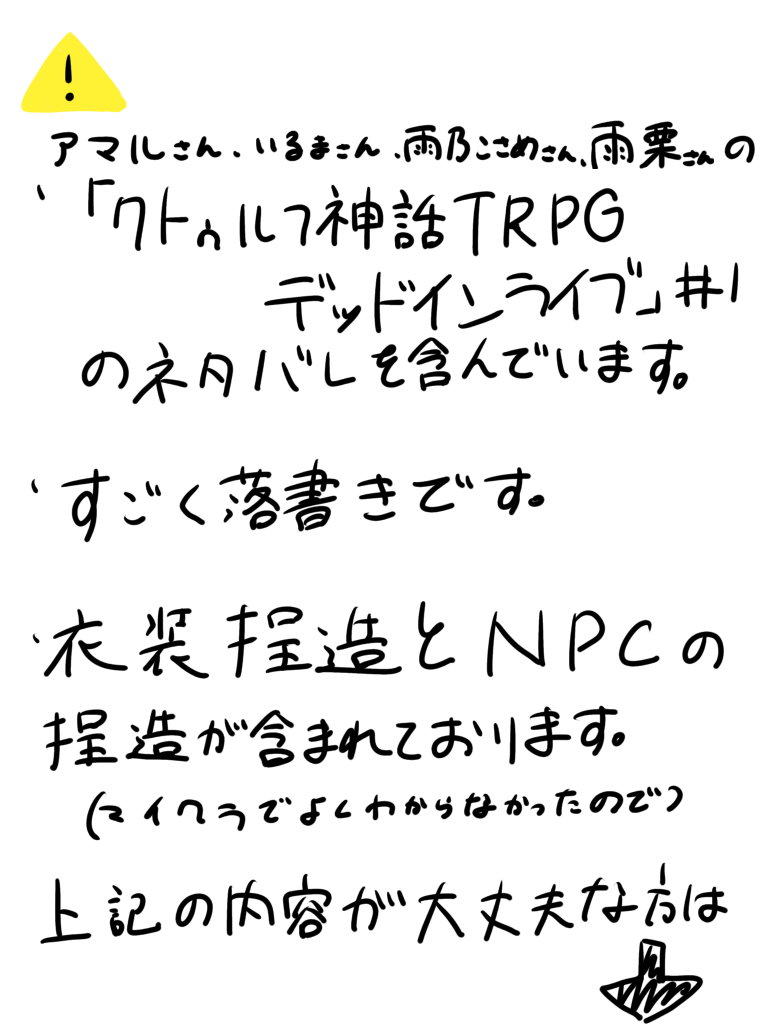 !
アマルさん、いるまさん、雨乃こさめさん、雨栗さんの
・「クトゥルフ神話TRPG
デッドインライブ」#1
のネタバレを含んでいます。
・すごく落書きです。
・衣装捏造とNPCの
捏造が含まれております。
(マイクラでよくわからなかったので)
上記の内容が大丈夫な方は